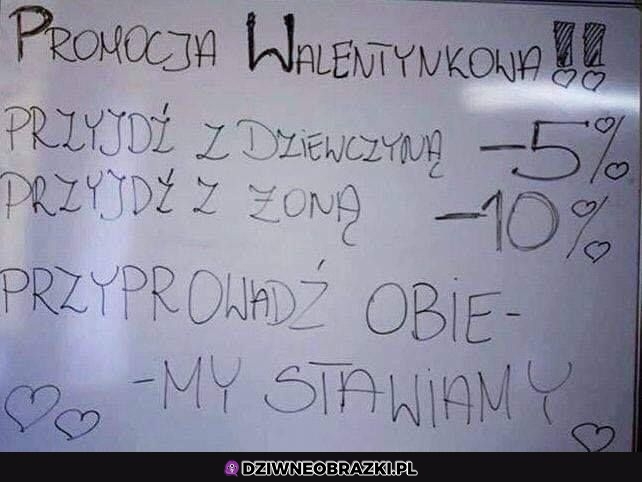 PROMOCJA WALENTYNKOWA!!
PRZYJDŹ Z DZIEWCZYNĄ -5%
PRZYJDŹ Z ŻONĄ -10%
PRZYPROWADŹ OBIE-
-MY STAWIAMY
DZIWNEOBRAZKI.PL